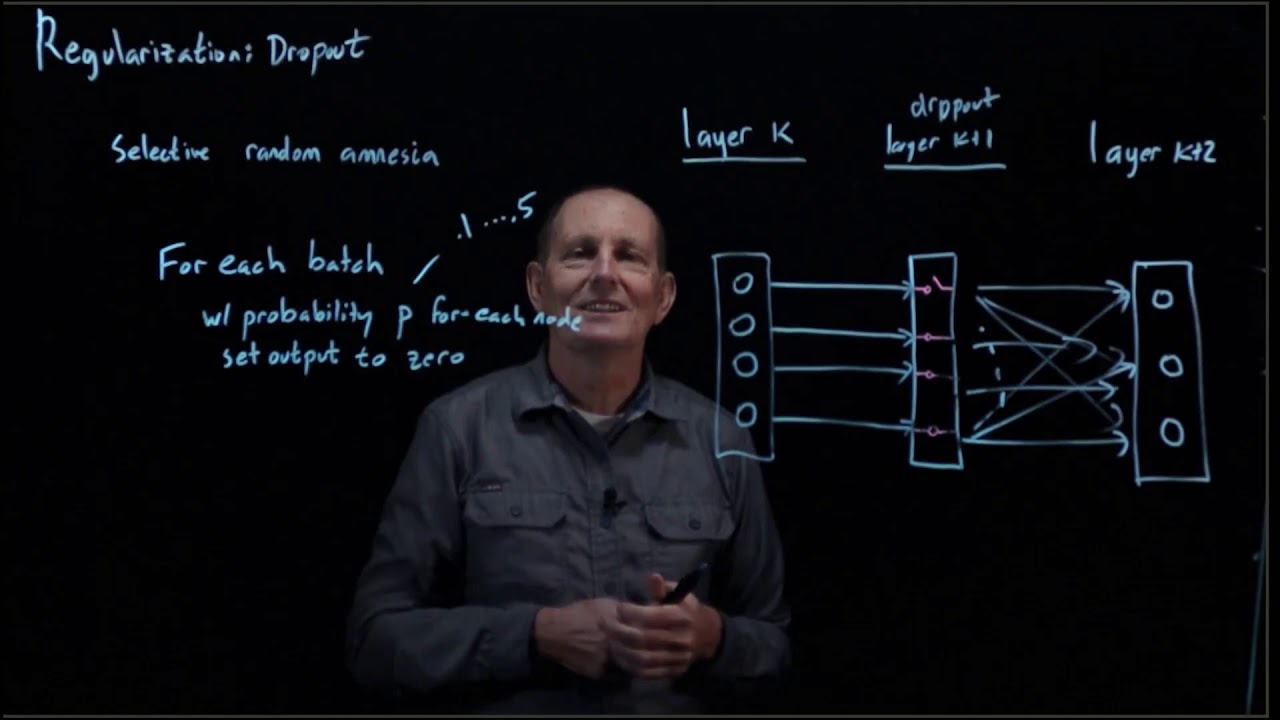 Regularization: Dropout
Selective random amnesia
.1 ... .5
For each batch
w/ probability p for each node
set output to zero
layer K
dropout
layer K+1
layer K+2